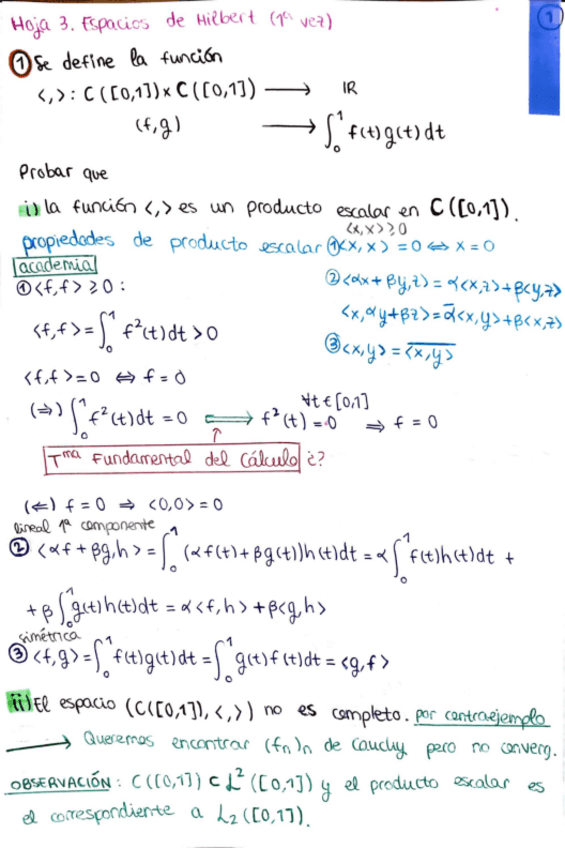 Hoja 3. Espacios de Hilbert (1ª vez)
1
① Se define la función
<,>: C([0,1]) x C([0,1]) ⟶ IR
(f,g) ⟶ ∫₀¹ f(t)g(t)dt
Probar que
i) la función <,> es un producto escalar en C([0,1]).
propiedades de producto escalar ① <x,x> ≥ 0 <x,x> = 0 ⇔ x = 0
② <αx + βy,z> = α<x,z> + β<y,z>
<x,αy+βz> = ᾱ<x,y> + β<x,z>
③ <x,y> = \overline{<x,y>}
academia
① <f,f> ≥ 0 :
<f,f> = ∫₀¹ f²(t)dt > 0
<f,f> = 0 ⇔ f = 0
(⇒) ∫₀¹ f²(t)dt = 0 ⟺ f²(t) = 0 ∀t ∈ [0,1] ⇒ f = 0
↑
Tma Fundamental del Cálculo ¿?
(⇐) f = 0 ⇒ <0,0> = 0
lineal 1ª componente
② <αf + βg,h> = ∫₀¹ (αf(t) + βg(t))h(t)dt = α∫₀¹ f(t)h(t)dt +
+ β∫₀¹ g(t)h(t)dt = α<f,h> + β<g,h>
simétrica
③ <f,g> = ∫₀¹ f(t)g(t)dt = ∫₀¹ g(t)f(t)dt = <g,f>
ii) El espacio (C([0,1]),<,>) no es completo. por contraejemplo
⟶ Queremos encontrar (fn)n de Cauchy pero no converg.
OBSERVACIÓN: C([0,1]) ⊂ L²([0,1]) y el producto escalar es
el correspondiente a L₂([0,1]).